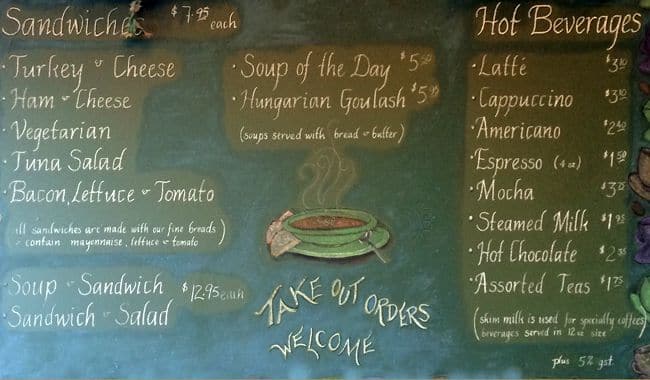 Sandwiches $7.95 each
· Turkey & Cheese
· Ham & Cheese
· Vegetarian
· Tuna Salad
· Bacon, Lettuce & Tomato
(all sandwiches are made with our fine breads
& contain mayonnaise, lettuce & tomato)
· Soup & Sandwich $12.95 each
· Sandwich & Salad
· Soup of the Day
· Hungarian Goulash
(soups served with bread & butter)
TAKE OUT ORDERS
WELCOME
Hot Beverages
· Latté $3.10
· Cappuccino $3.10
· Americano
· Espresso (4 oz) $1.50
· Mocha
· Steamed Milk $1.95
· Hot Chocolate
· Assorted Teas $1.75
(skim milk is used for specialty coffees
beverages served in 12 oz size)
plus 5% gst.